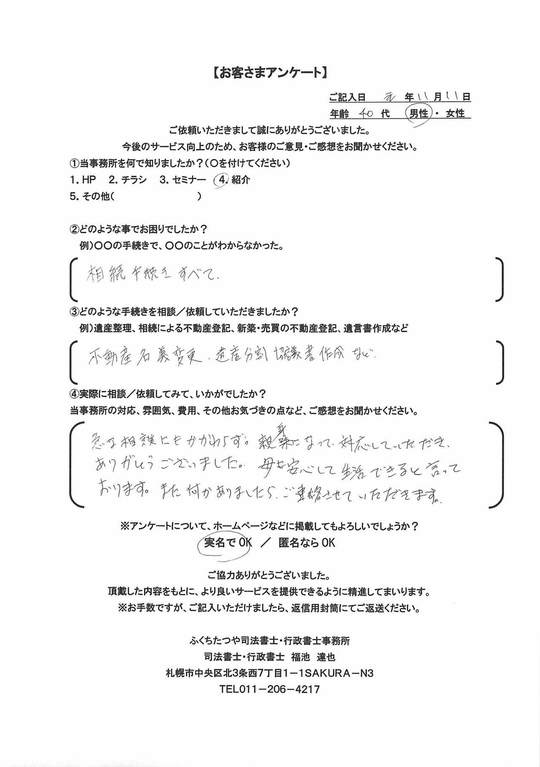 【お客さまアンケート】
ご記入日 元 年 11 月 11 日
年齢 40 代 男性 ・ 女性
ご依頼いただきまして誠にありがとうございました。
今後のサービス向上のため、お客様のご意見・ご感想をお聞かせください。
①当事務所を何で知りましたか?(○を付けてください)
1. HP 2. チラシ 3. セミナー 4. 紹介
5. その他( )
②どのような事でお困りでしたか?
例)○○の手続きで、○○のことがわからなかった。
相続手続きすべて。
③どのような手続きを相談/依頼していただきましたか?
例)遺産整理、相続による不動産登記、新築・売買の不動産登記、遺言書作成など
不動産名義変更、遺産分割協議書作成など
④実際に相談/依頼してみて、いかがでしたか?
当事務所の対応、雰囲気、費用、その他お気づきの点など、ご感想をお聞かせください。
急な相談にもかかわらず。親身になって対応していただき、
ありがとうございました。母も安心して生活できると言って
おります。また何かありましたら、ご連絡させていただきます。
※アンケートについて、ホームページなどに掲載してもよろしいでしょうか?
実名でOK / 匿名ならOK
ご協力ありがとうございました。
頂戴した内容をもとに、より良いサービスを提供できるように精進してまいります。
※お手数ですが、ご記入いただけましたら、返信用封筒にてご返送ください。
ふくちたつや司法書士・行政書士事務所
司法書士・行政書士 福池 達也
札幌市中央区北3条西7丁目1-1SAKURA-N3
TEL011-206-4217